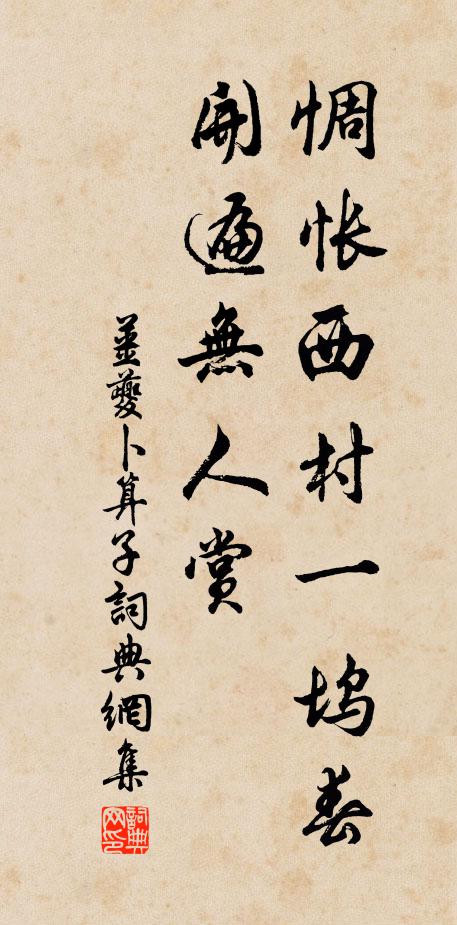 惆怅西村一坞春
開遍無人賞
薑夔卜算子詞典網集
詞典网印